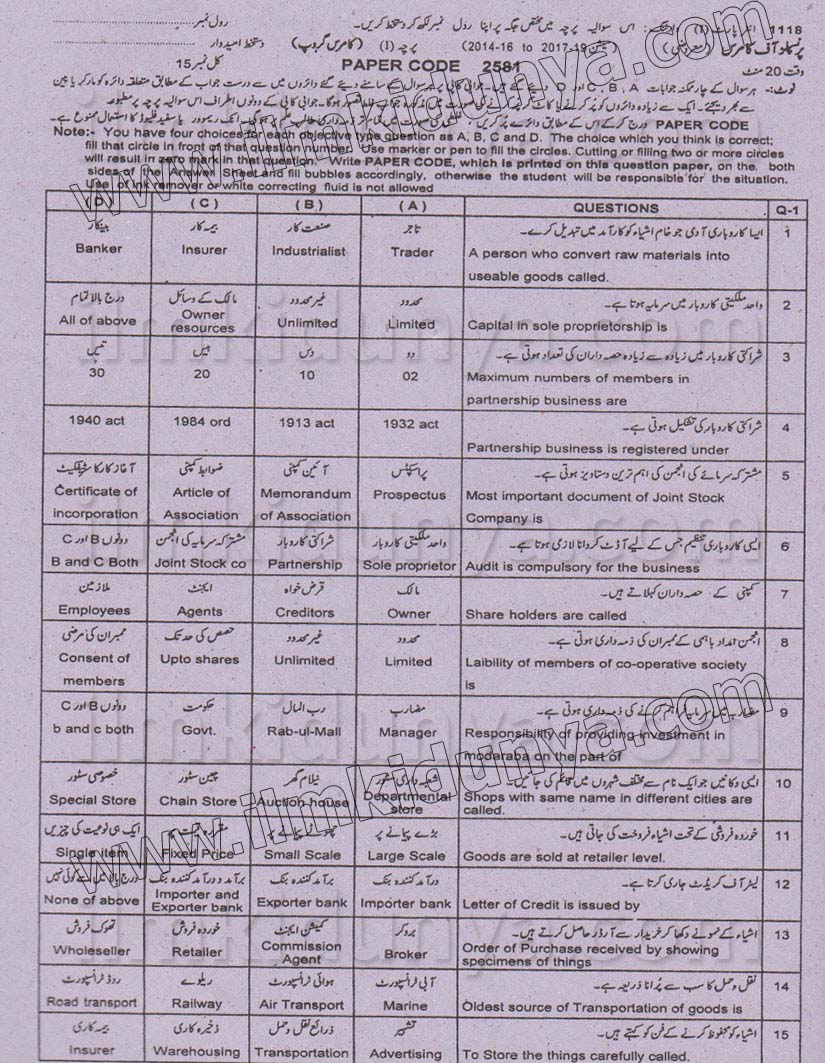 1118 انٹر پارٹ (I) اس سوالیہ پرچہ میں مختص جگہ پر اپنا رول نمبر لکھ کر دستخط کریں۔ رول نمبر
پرنسپلز آف کامرس (معروضی) (سیشن 2014-16 to 2017-19) پرچہ (I) (کامرس گروپ) دستخط امیدوار
وقت 20 منٹ PAPER CODE 2581 کل نمبر 15
نوٹ:- ہر سوال کے چار ممکنہ جوابات A, B, C اور D دیئے گئے ہیں۔ جوابی کاپی پر ہر سوال کے سامنے دیئے گئے دائروں میں سے درست جواب کے مطابق متعلقہ دائرہ کو مارکر یا پین
سے بھر دیجئے۔ ایک سے زیادہ دائروں کو پُر کرنے یا کاٹ کر پُر کرنے کی صورت میں مذکورہ جواب غلط تصور ہوگا۔ جوابی کاپی کے دونوں اطراف اس سوالیہ پرچہ پر مطبوعہ
PAPER CODE درج کر کے اس کے مطابق دائرے پُر کریں۔ انک ریموور یا سفید فلیوڈ کا استعمال ممنوع ہے۔
Note:- You have four choices for each objective type question as A, B, C and D. The choice which you think is correct;
fill that circle in front of that question number. Use marker or pen to fill the circles. Cutting or filling two or more circles
will result in zero mark in that question. Write PAPER CODE, which is printed on this question paper, on the both
sides of the Answer Sheet and fill bubbles accordingly, otherwise the student will be responsible for the situation.
Use of ink remover or white correcting fluid is not allowed
(D) (C) (B) (A) QUESTIONS Q-1
بینکار بیمہ کار صنعت کار تاجر ایسا کاروباری آدمی جو خام اشیاء کو کارآمد میں تبدیل کرے۔ 1
Banker Insurer Industrialist Trader A person who convert raw materials into
useable goods called.
درج بالا تمام مالک کے وسائل غیر محدود محدود واحد ملکیتی کاروبار میں سرمایہ ہوتا ہے۔ 2
All of above Owner resources Unlimited Limited Capital in sole proprietorship is
تیس بیس دس دو شراکتی کاروبار میں زیادہ سے زیادہ حصہ داران کی تعداد ہوتی ہے۔ 3
30 20 10 02 Maximum numbers of members in
partnership business are
1940 act 1984 ord 1913 act 1932 act شراکتی کاروبار کی تشکیل ہوتی ہے۔ 4
Partnership business is registered under
آغاز کار کا سرٹیفکیٹ ضوابط کمپنی آئین کمپنی پراسپکٹس مشترکہ سرمائے کی انجمن کی اہم ترین دستاویز ہوتی ہے۔ 5
Certificate of Article of Memorandum Prospectus Most important document of Joint Stock
incorporation Association of Association Company is
دونوں B اور C مشترکہ سرمایہ کی انجمن شراکتی کاروبار واحد ملکیتی کاروبار ایسی کاروباری تنظیم جس کے لیے آڈٹ کروانا لازمی ہوتا ہے۔ 6
B and C Both Joint Stock co Partnership Sole proprietor Audit is compulsory for the business
ملازمین ایجنٹ قرض خواہ مالک کمپنی کے حصہ داران کہلاتے ہیں۔ 7
Employees Agents Creditors Owner Share holders are called
ممبران کی مرضی حصص کی حد تک غیر محدود محدود انجمن امداد باہمی کے ممبران کی ذمہ داری ہوتی ہے۔ 8
Consent of Upto shares Unlimited Limited Laibility of members of co-operative society
members is
دونوں B اور C حکومت رب المال مضارب مضاربہ میں سرمایہ فراہم کرنے کی ذمہ داری ہوتی ہے۔ 9
b and c both Govt. Rab-ul-Mall Manager Responsibility of providing investment in
modaraba on the part of
خصوصی سٹور چین سٹور نیلام گھر شعبہ داری سٹور ایسی دکانیں جو ایک نام سے مختلف شہروں میں قائم کی جائیں۔ 10
Special Store Chain Store Auction house Departmental store Shops with same name in different cities are
called.
ایک ہی نوعیت کی چیزیں مقررہ قیمت پر چھوٹے پیمانے پر بڑے پیمانے پر خوردہ فروشی کے تحت اشیاء فروخت کی جاتی ہیں۔ 11
Single item Fixed Price Small Scale Large Scale Goods are sold at retailer level.
درج بالا میں سے کوئی نہیں برآمد و درآمد کنندہ بنک برآمد کنندہ بنک درآمد کنندہ بنک لیٹر آف کریڈٹ جاری کرتا ہے۔ 12
None of above Importer and Exporter bank Exporter bank Importer bank Letter of Credit is issued by
تھوک فروش خوردہ فروش کمیشن ایجنٹ بروکر اشیاء کے نمونے دکھا کر خریدار سے آرڈر حاصل کرتے ہیں۔ 13
Wholeseller Retailer Commission Agent Broker Order of Purchase received by showing
specimens of things
روڈ ٹرانسپورٹ ریلوے ہوائی ٹرانسپورٹ آبی ٹرانسپورٹ نقل و حمل کا سب سے پُرانا ذریعہ ہے۔ 14
Road transport Railway Air Transport Marine Oldest source of Transportation of goods is
بیمہ کاری ذخیرہ کاری ذرائع نقل و حمل تشہیر اشیاء کو محفوظ کرنے کے فن کو کہتے ہیں۔ 15
Insurer Warehousing Transportation Advertising To Store the things carefully called.
www.ilmkidunya.com